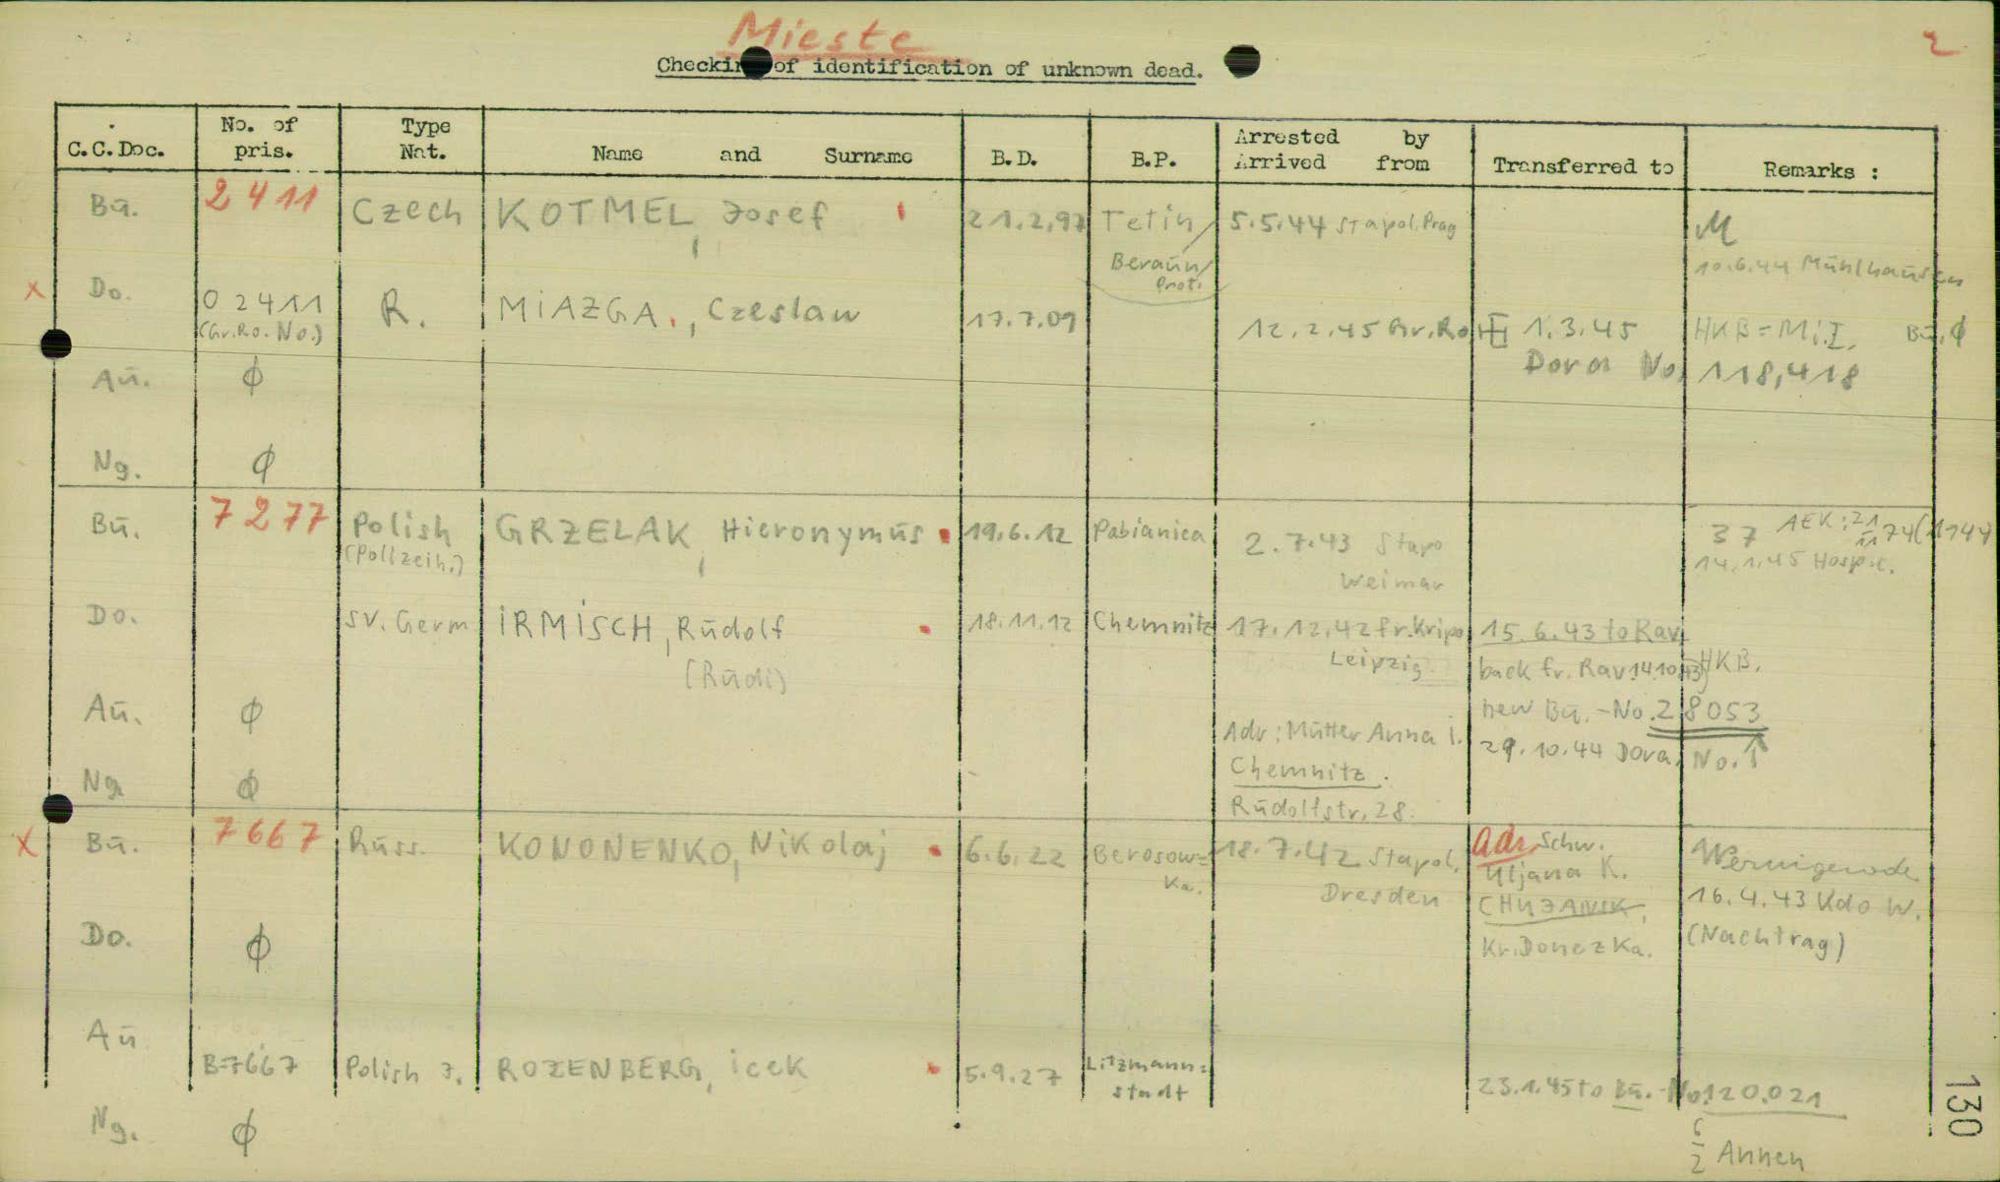 Mieste
2
Checking of identification of unknown dead.
C.C.Doc. No. of pris. Type Nat. Name and Surname B.D. B.P. Arrested by Arrived from Transferred to Remarks :
Bū. 2411 Czech KOTMEL, Josef 21.2.97 Tetin/ 5.5.44 Stapol. Prag M
Beraūn/ Prot. 10.6.44 Mühlhaūsen
x Do. 02411 R. MiAZGA, Czeslaw 17.7.09 12.2.45 Gr.Ro. 1.3.45 HKB=Mi.I. Bū. ϕ
(Gr.Ro. No.) Dora No. 118,418
Aū. ϕ
Ng. ϕ
Bū. 7277 Polish GRZELAK, Hieronymūs 19.6.12 Pabianica 2.7.43 Stapo 37 AEK:
(Pol.Izeih.) Weimar 14.1.45 Hospit.
Do. SV. Germ iRMiSCH, Rūdolf 18.11.12 Chemnitz 17.12.42 fr. Kripo 15.6.43 to Rav.
(Rūdi) Leipzig back fr. Rav. 14.10.43) HKB.
Aū. ϕ Adr: Mūtter Anna i. new Bū.-No. 28053
Chemnitz. 29.10.44 Dora, No. ↑
Ng. ϕ Rūdolfstr. 28.
x Bū. 7667 Rūss. KONONENKO, Nikolaj 6.6.22 Berosow= 18.7.42 Stapol. Adr Schw. Wernigerode
Ka. Dresden Uljana K. 16.4.43 Kdo W.
CHUJANIK, (Nachtrag)
Do. ϕ Kr. DonezKa.
Aū
B-7667 Polish J. ROZENBERG, icek 5.9.27 Litzmann= 23.1.45 to Bū.-No. 120.021
stadt
Ng. ϕ 6/2 Annen
130